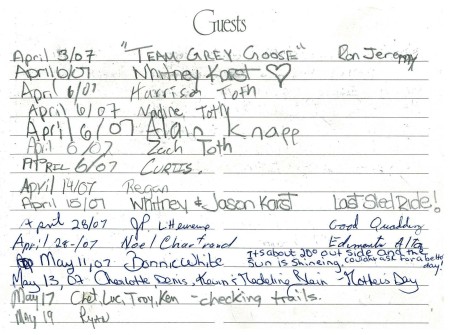 Guests
April 3/07 "TEAM GREY GOOSE" Ron Jeremy
April 6/07 Whitney Karst ♡
April 6/07 Harrison Toth
April 6/07 Nadine Toth
April 6/07 Alain Knapp
April 6/07 Zach Toth
APRIL 6/07 CURTIS.
April 14/07 Reegan
April 15/07 Whitney & Jason Karst Last Sled Ride!
April 28/07 JP L'Heureux Good Quadding
April 28-/07 Noel Chartrand Edmonton Alta
May 11, 07 Bonnie White It's about 20° out side and the
sun is shineing, couldn't ask for a better day!
May 13, 07 Charlotte Denis, Kevin & Madeline Blain - Mothers Day
May 17 Chet, Luc, Troy, Ken - checking trails.
May 19 Ryan